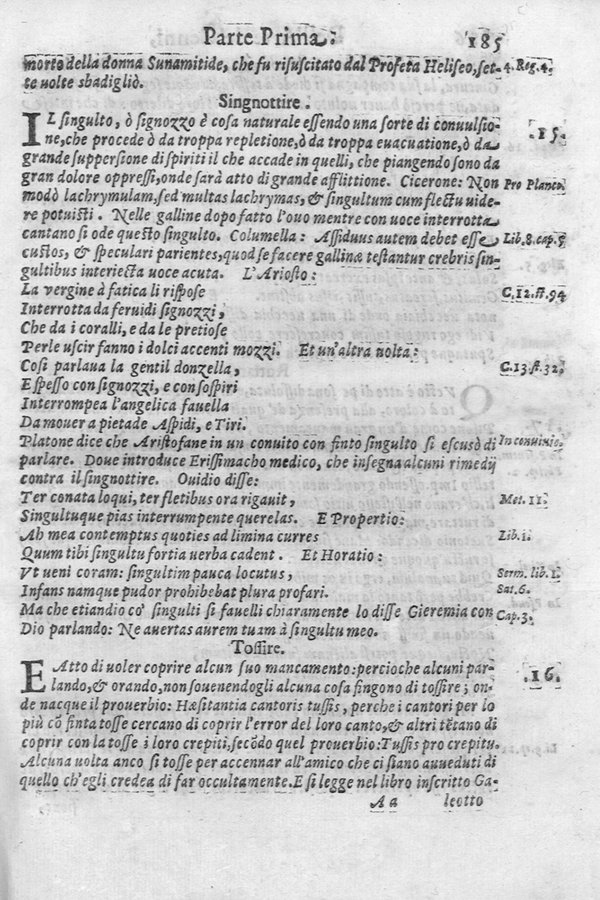 Parte Prima. 185
morto della donna Sunamitide, che fu risuscitato dal Profeta Heliseo, set- 4. Reg. 4.
te uolte sbadigliò.
Singnottire.
IL singulto, ò signozzo è cosa naturale essendo una sorte di conuulsio- 15.
ne, che procede ò da troppa repletione, ò da troppa euacuatione, ò da
grande suppersione di spiriti il che accade in quelli, che piangendo sono da
gran dolore oppressi, onde sarà atto di grande afflittione. Cicerone: Non Pro Planco.
modò lachrymulam, sed multas lachrymas, & singultum cum fletu uide-
re potuisti. Nelle galline dopo fatto l'ouo mentre con uoce interrotta
cantano si ode questo singulto. Columella: Assiduus autem debet esse Lib. 8. cap. 5
custos, & speculari parientes, quod se facere gallinæ testantur crebris sin-
gultibus interiecta uoce acuta. L'Ariosto:
La vergine à fatica li rispose C. 12. st. 94
Interrotta da feruidi signozzi,
Che da i coralli, e da le pretiose
Perle uscir fanno i dolci accenti mozzi. Et un'altra uolta:
Cosi parlaua la gentil donzella, C. 13. st. 32.
E spesso con signozzi, e con sospiri
Interrompea l'angelica fauella
Da mouer a pietade Aspidi, e Tiri.
Platone dice che Aristofane in un conuito con finto singulto si escusò di In conuiuio.
parlare. Doue introduce Erissimacho medico, che insegna alcuni rimedij
contra il singnottire. Ouidio disse:
Ter conata loqui, ter fletibus ora rigauit, Met. 11.
Singultuque pias interrumpente querelas. E Propertio:
Ah mea contemptus quoties ad limina curres Lib. 1.
Quum tibi singultu fortia uerba cadent. Et Horatio:
Vt ueni coram: singultim pauca locutus, Serm. lib. 1.
Infans namque pudor prohibebat plura profari. Sat. 6.
Ma che etiandio co' singulti si fauelli chiaramente lo disse Gieremia con Cap. 3.
Dio parlando: Ne auertas aurem tuam à singultu meo.
Tossire.
E Atto di uoler coprire alcun suo mancamento: percioche alcuni par- 16.
lando, & orando, non souenendogli alcuna cosa fingono di tossire; on-
de nacque il prouerbio: Hæsitantia cantoris tussis, perche i cantori per lo
più cõ finta tosse cercano di coprir l'error del loro canto, & altri tẽtano di
coprir con la tosse i loro crepiti, secõdo quel prouerbio: Tussis pro crepitu.
Alcuna uolta anco si tosse per accennar all'amico che ci siano auueduti di
quello ch'egli credea di far occultamente. E si legge nel libro inscritto Ga-
Aa leotto